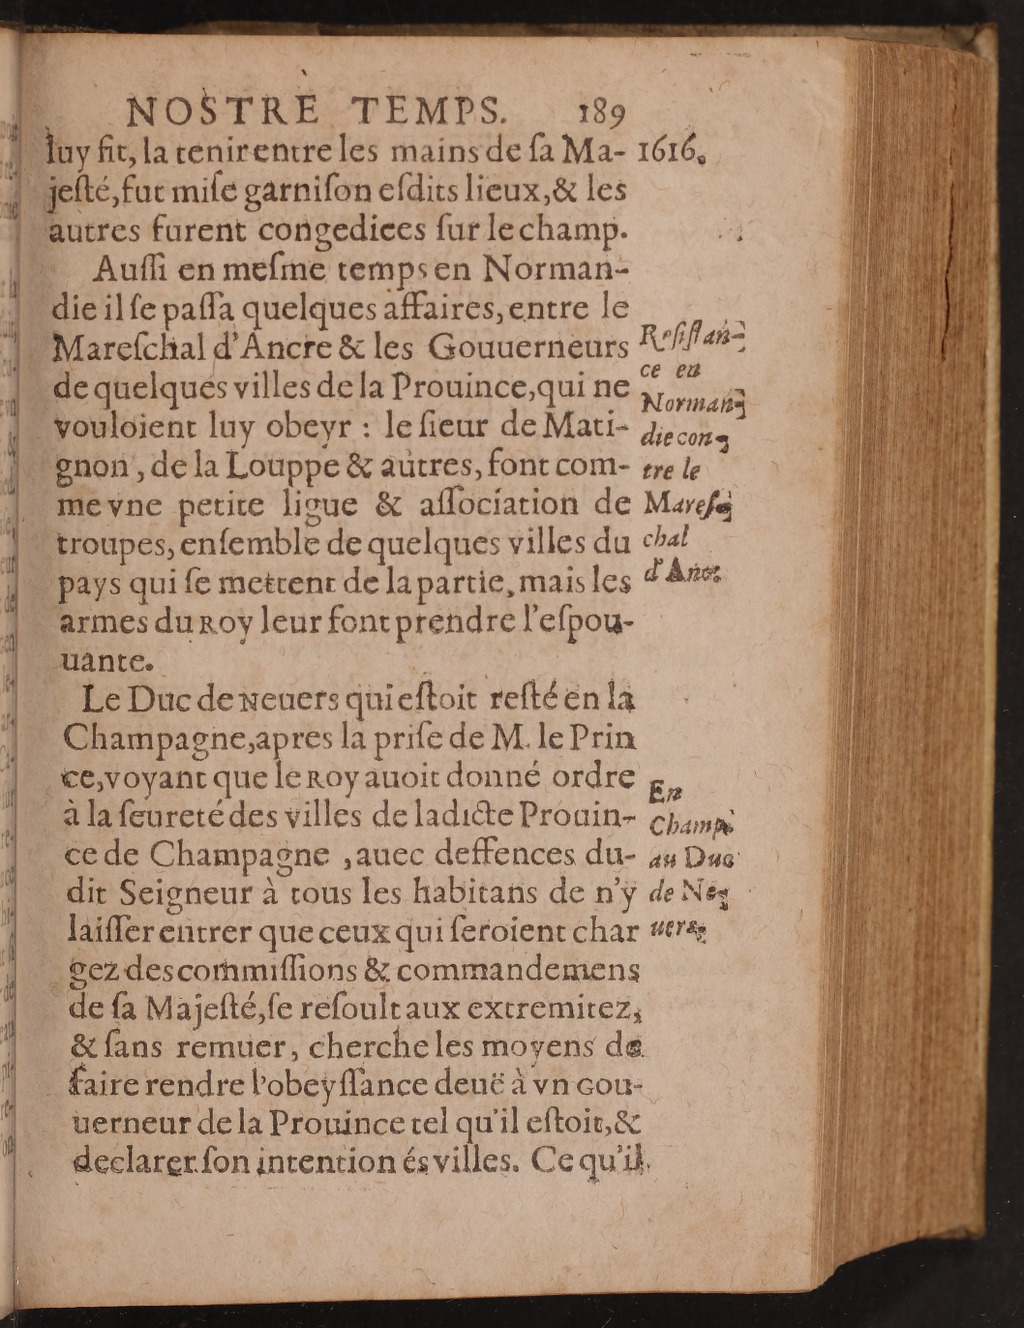 NOSTRE TEMPS. 189
luy fit, la tenir entre les mains de ſa Ma- 1616,
jeſté, fut miſe garniſon eſdits lieux, & les
autres furent congediees ſur le champ.
Auſſi en meſme temps en Norman-
die il ſe paſſa quelques affaires, entre le
Mareſchal d'Ancre & les Gouuerneurs
de quelques villes de la Prouince, qui ne
vouloient luy obeyr : le ſieur de Mati-
gnon, de la Louppe & autres, font com-
me vne petite ligue & aſſociation de
troupes, enſemble de quelques villes du
pays qui ſe mettent de la partie, mais les
armes du Roy leur font prendre l'eſpou-
uante.
Reſiſtan-
ce en
Norman-
die con-
tre le
Mareſ-
chal
d'Ancr
Le Duc de Neuers qui eſtoit reſté en la
Champagne, apres la priſe de M. le Prin
ce, voyant que le Roy auoit donné ordre
à la ſeureté des villes de ladicte Prouin-
ce de Champagne, auec deffences du-
dit Seigneur à tous les habitans de n'y
laiſſer entrer que ceux qui ſeroient char
gez des commiſſions & commandemens
de ſa Majeſté, ſe reſoult aux extremitez,
& ſans remuer, cherche les moyens de
faire rendre l'obeyſſance deuë à vn Gou-
uerneur de la Prouince tel qu'il eſtoit, &
declarer ſon intention és villes. Ce qu'il
En
Champ
au Duc
de Ne-
uers